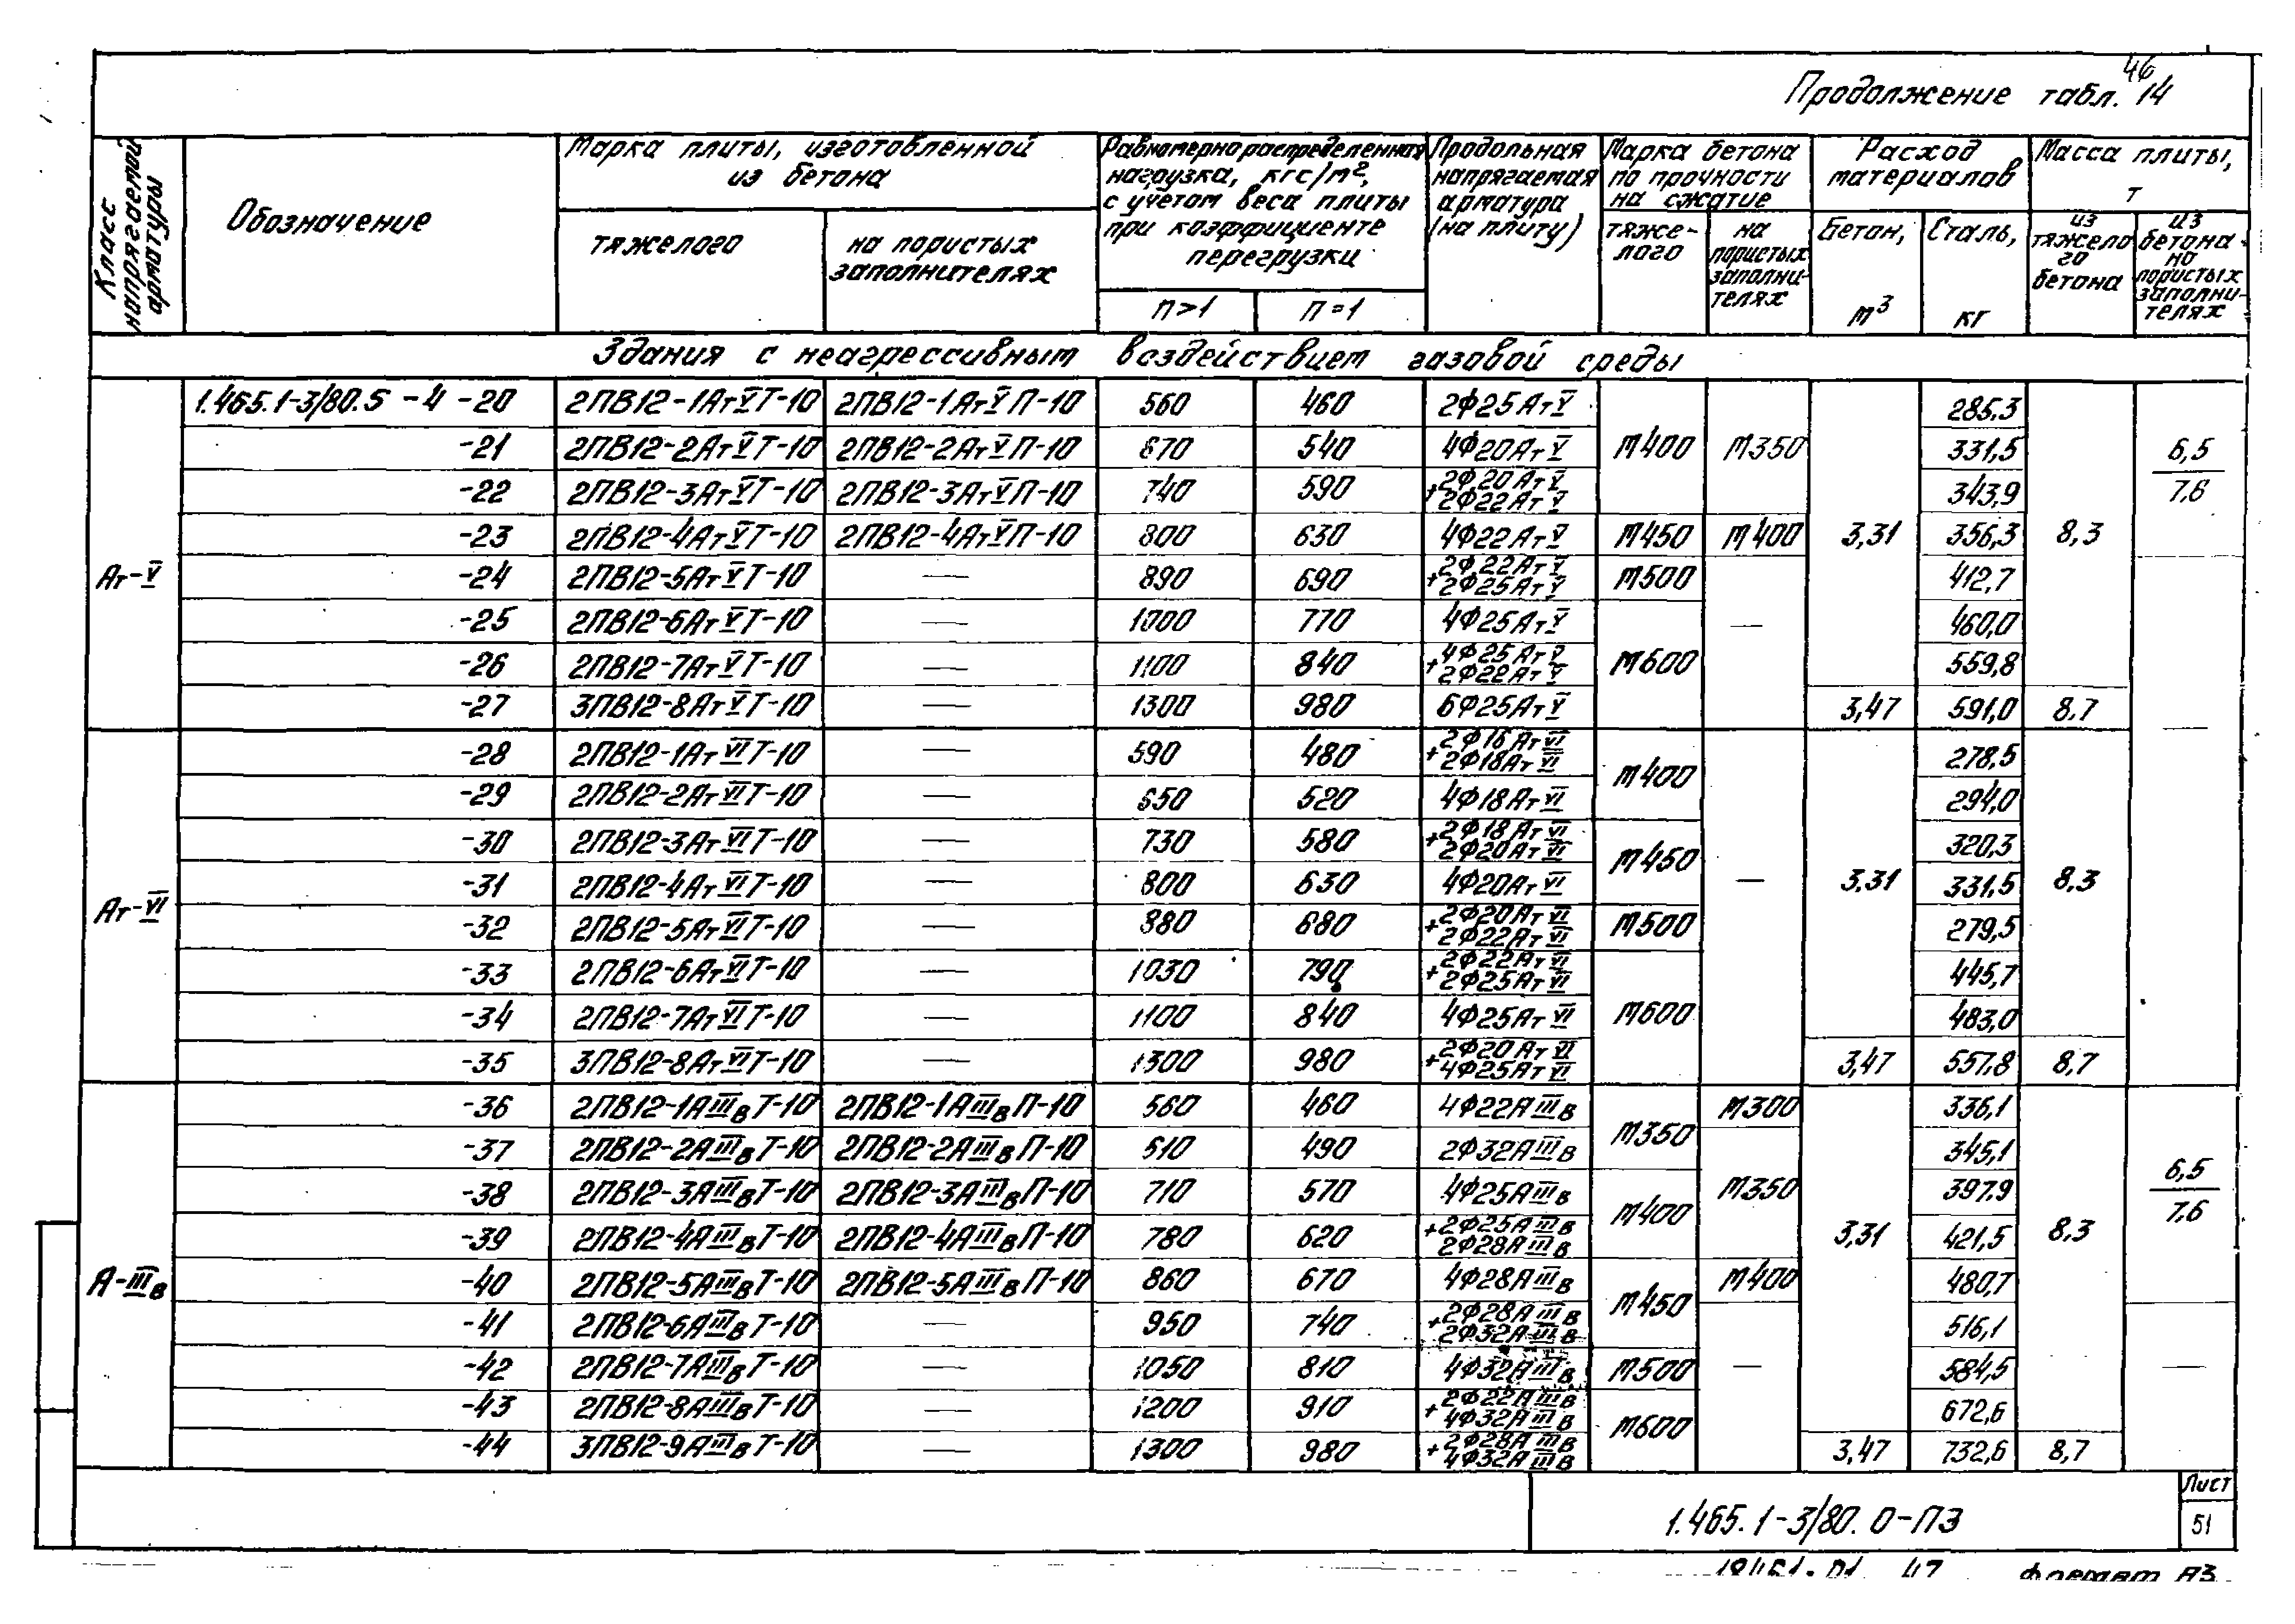 46
Продолжение табл. 14
Класс напрягаемой арматуры
Обозначение
Марка плиты, изготовленной из бетона
тяжелого
на пористых заполнителях
Равномерно распределенная нагрузка, кгс/м², с учетом веса плиты при коэффициенте перегрузки
n>1
n=1
Продольная напрягаемая арматура (на плиту)
Марка бетона по прочности на сжатие
тяже-лого
на пористых заполни-телях
Расход материалов
Бетон, м³
Сталь, кг
Масса плиты, т
из тяжело го бетона
из бетона на пористых заполни-телях
Здания с неагрессивным воздействием газовой среды
Ат-V
1.465.1-3/80.5 -4 -20 2ПВ12-1АтVТ-10 2ПВ12-1АтVП-10 560 460 2Ф25АтV М400 М350 3,31 285,3 8,3 6,5/7,6
-21 2ПВ12-2АтVТ-10 2ПВ12-2АтVП-10 670 540 4Ф20АтV 331,5
-22 2ПВ12-3АтVТ-10 2ПВ12-3АтVП-10 740 590 2Ф20АтV +2Ф22АтV 343,9
-23 2ПВ12-4АтVТ-10 2ПВ12-4АтVП-10 800 630 4Ф22АтV М450 М400 356,3
-24 2ПВ12-5АтVТ-10 — 890 690 2Ф22АтV +2Ф25АтV М500 — 412,7 —
-25 2ПВ12-6АтVТ-10 — 1000 770 4Ф25АтV М600 460,0
-26 2ПВ12-7АтVТ-10 — 1100 840 4Ф25АтV +2Ф22АтV 559,8
-27 3ПВ12-8АтVТ-10 — 1300 980 6Ф25АтV 3,47 591,0 8,7
Ат-VI
-28 2ПВ12-1АтVIТ-10 — 590 480 2Ф16АтVI +2Ф18АтVI М400 — 3,31 278,5 8,3
-29 2ПВ12-2АтVIТ-10 — 650 520 4Ф18АтVI 294,0
-30 2ПВ12-3АтVIТ-10 — 730 580 2Ф18АтVI +2Ф20АтVI М450 320,3
-31 2ПВ12-4АтVIТ-10 — 800 630 4Ф20АтVI 331,5
-32 2ПВ12-5АтVIТ-10 — 880 680 2Ф20АтVI +2Ф22АтVI М500 279,5
-33 2ПВ12-6АтVIТ-10 — 1030 790 2Ф22АтVI +2Ф25АтVI М600 445,7
-34 2ПВ12-7АтVIТ-10 — 1100 840 4Ф25АтVI 483,0
-35 3ПВ12-8АтVIТ-10 — 1300 980 2Ф20АтVI +4Ф25АтVI 3,47 557,8 8,7
А-IIIв
-36 2ПВ12-1АIIIвТ-10 2ПВ12-1АIIIвП-10 560 460 4Ф22АIIIв М350 М300 3,31 336,1 8,3 6,5/7,6
-37 2ПВ12-2АIIIвТ-10 2ПВ12-2АIIIвП-10 610 490 2Ф32АIIIв М350 345,1
-38 2ПВ12-3АIIIвТ-10 2ПВ12-3АIIIвП-10 710 570 4Ф25АIIIв М400 397,9
-39 2ПВ12-4АIIIвТ-10 2ПВ12-4АIIIвП-10 780 620 +2Ф25АIIIв 2Ф28АIIIв 421,5
-40 2ПВ12-5АIIIвТ-10 2ПВ12-5АIIIвП-10 860 670 4Ф28АIIIв М450 М400 480,7
-41 2ПВ12-6АIIIвТ-10 — 950 740 +2Ф28АIIIв 2Ф32АIIIв — 516,1 —
-42 2ПВ12-7АIIIвТ-10 — 1050 810 4Ф32АIIIв М500 584,5
-43 2ПВ12-8АIIIвТ-10 — 1200 910 2Ф22АIIIв +4Ф32АIIIв М600 672,6
-44 3ПВ12-9АIIIвТ-10 — 1300 980 +2Ф28АIIIв 4Ф32АIIIв 3,47 732,6 8,7
1.465.1-3/80.0-ПЗ
Лист
51
47
Формат А3